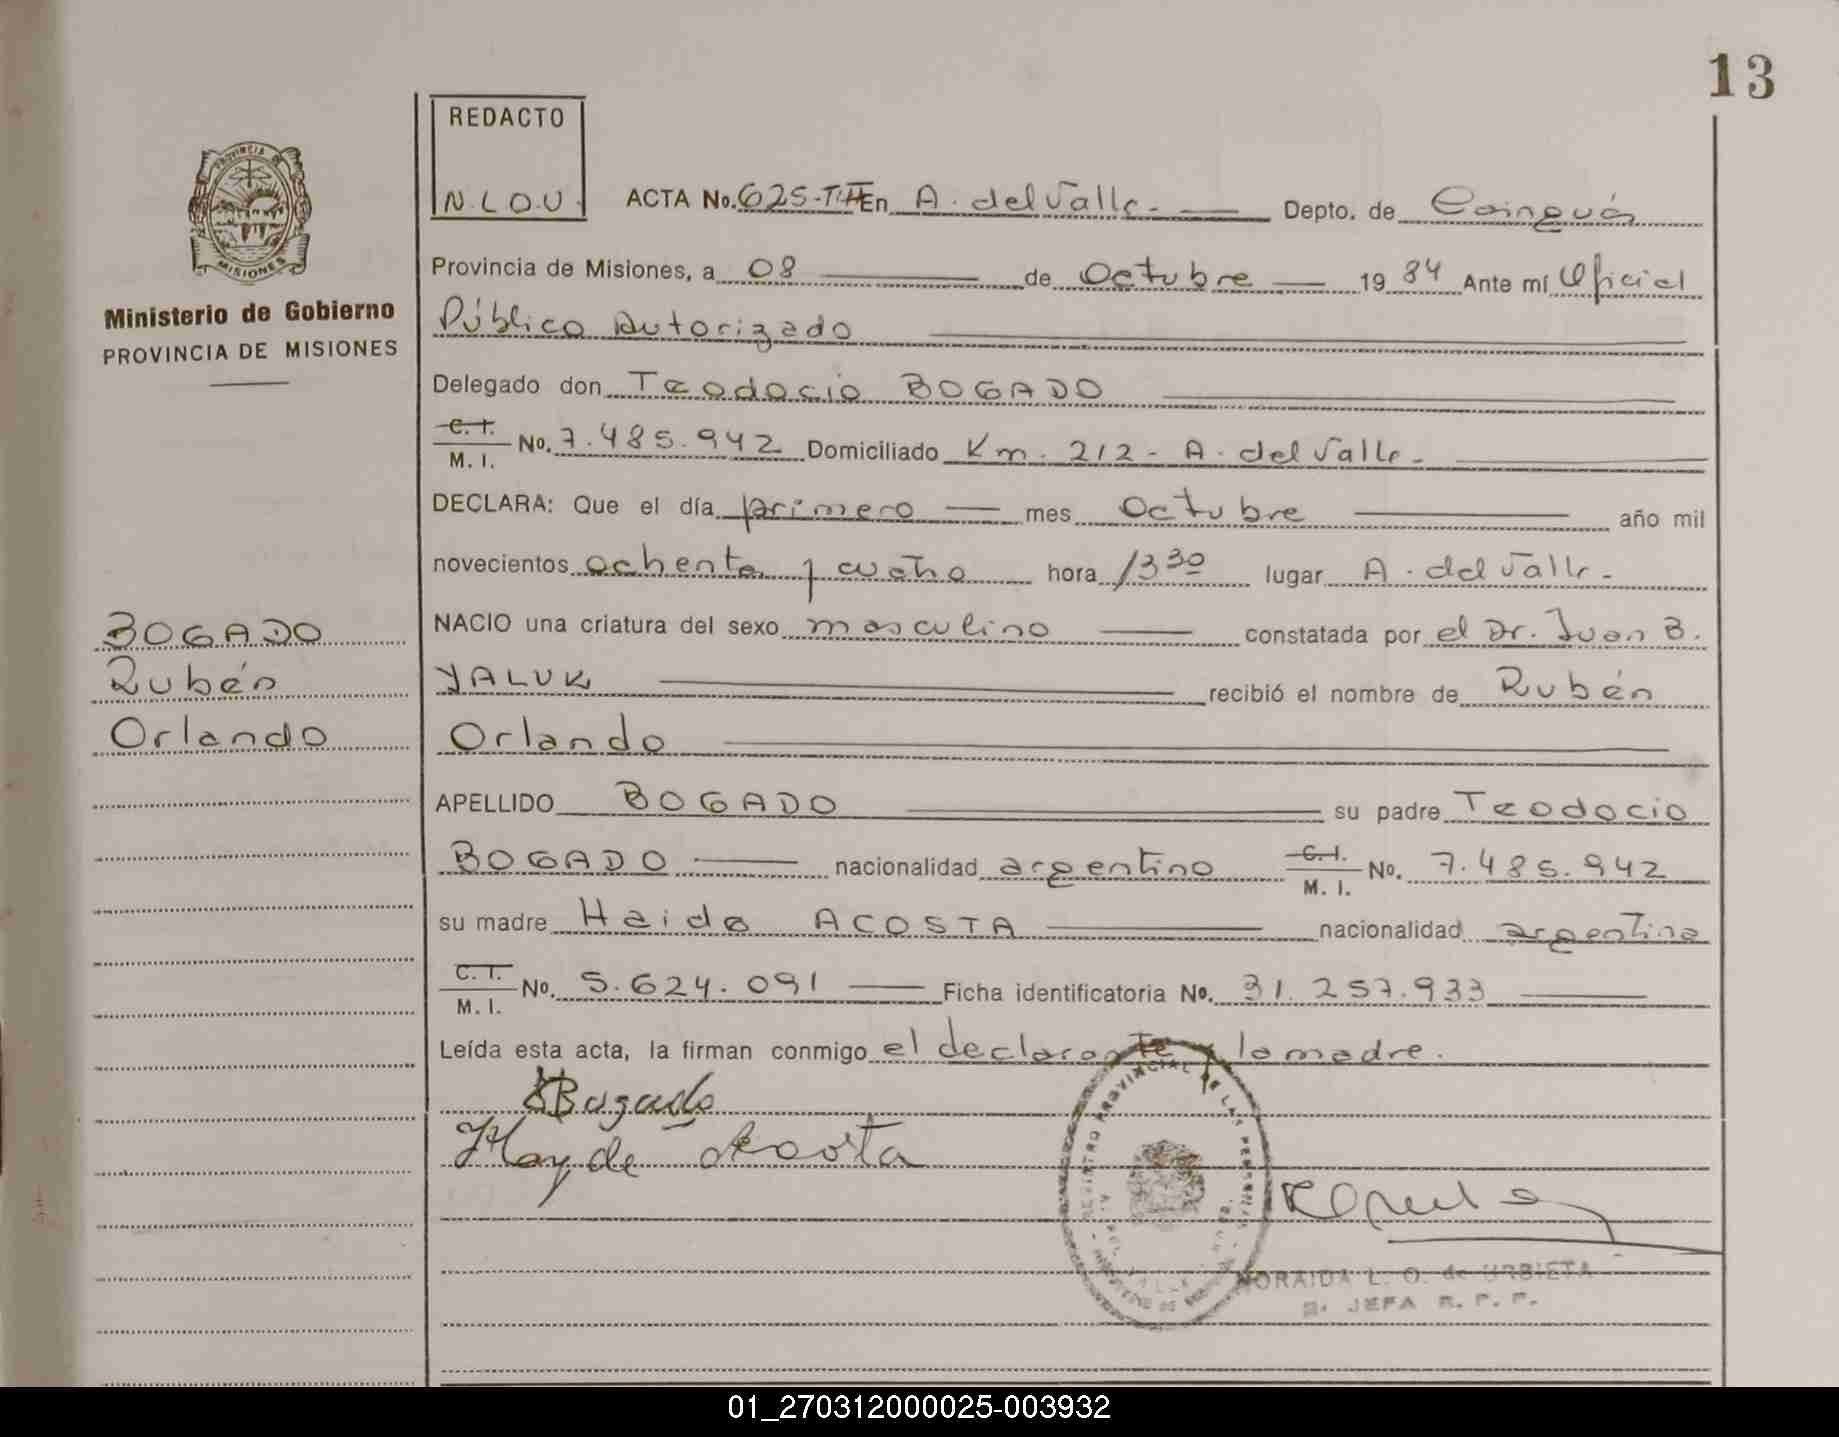 13
REDACTO
N.L.O.U.
PROVINCIA DE
MISIONES
Ministerio de Gobierno
PROVINCIA DE MISIONES
BOGADO
Rubén
Orlando
ACTA No. 625-T:II En A. del Valle.- Depto. de Cainguás
Provincia de Misiones, a 08 de Octubre 19 84 Ante mí Oficial
Público Autorizado
Delegado don Teodocio BOGADO
C. I. M. I. No. 7.485.942 Domiciliado Km. 212 - A. del Valle -
DECLARA: Que el día primero mes Octubre año mil
novecientos ochenta y cuatro hora 13 30 lugar A. del Valle -
NACIO una criatura del sexo masculino constatada por el Dr. Juan B.
YALUK recibió el nombre de Rubén
Orlando
APELLIDO BOGADO su padre Teodocio
BOGADO nacionalidad argentino C. I. M. I. No. 7.485.942
su madre Haide ACOSTA nacionalidad argentina
C. I. M. I. No. 5.624.091 Ficha identificatoria No. 31.257.933
Leída esta acta, la firman conmigo el declarante y la madre.
Bogado
Hayde Acosta
REGISTRO PROVINCIAL DE LAS PERSONAS
NORAIDA L. O. de URBIETA
JEFA R. P. P.
01_270312000025-003932